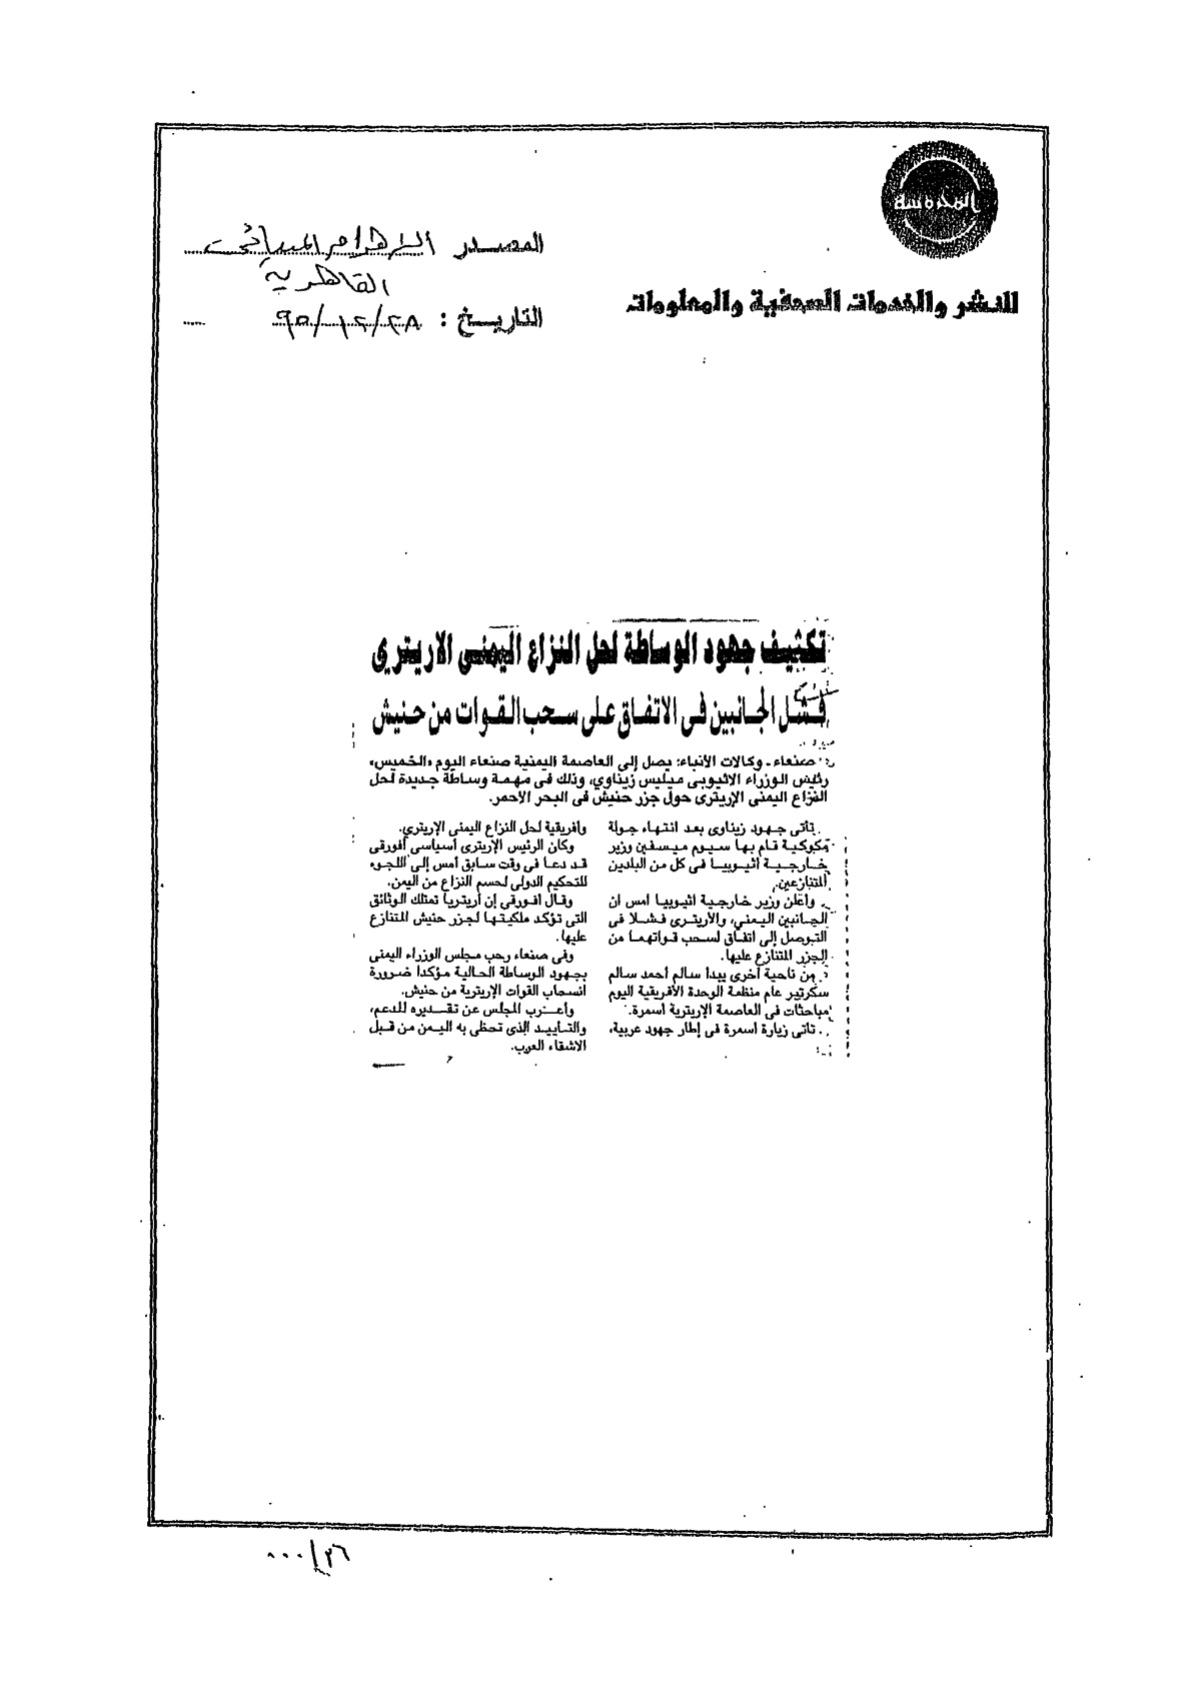 المحروسة
للنشر والخدمات الصحفية والمعلومات
المصدر الأهرام المسائي
القاهرية
التاريخ : ٩٥/١٢/٢٨
تكثيف جهود الوساطة لحل النزاع اليمنى الاريترى
فشل الجانبين فى الاتفاق على سحب القوات من حنيش
صنعاء ـ وكالات الأنباء: يصل إلى العاصمة اليمنية صنعاء اليوم «الخميس»
رئيس الوزراء الاثيوبى ميليس زيناوي، وذلك فى مهمة وساطة جديدة لحل
النزاع اليمنى الإريترى حول جزر حنيش فى البحر الأحمر.
تأتى جهود زيناوى بعد انتهاء جولة
مكوكية قام بها سيوم ميسفين وزير
خارجية اثيوبيا فى كل من البلدين
المتنازعين.
وأعلن وزير خارجية اثيوبيا امس ان
الجانبين اليمنى، والأريترى فشلا فى
التوصل إلى اتفاق لسحب قواتهما من
الجزر المتنازع عليها.
من ناحية أخرى يبدأ سالم أحمد سالم
سكرتير عام منظمة الوحدة الأفريقية اليوم
مباحثات فى العاصمة الإريترية اسمرة.
تأتى زيارة اسمرة فى إطار جهود عربية،
وأفريقية لحل النزاع اليمنى الإريترى.
وكان الرئيس الإريترى أسياسى أفورقى
قد دعا فى وقت سابق أمس إلى اللجوء
للتحكيم الدولى لحسم النزاع من اليمن.
وقال افورقى إن أريتريا تمتلك الوثائق
التى تؤكد ملكيتها لجزر حنيش المتنازع
عليها.
وفى صنعاء رحب مجلس الوزراء اليمنى
بجهود الوساطة الحالية مؤكدا ضرورة
انسحاب القوات الإريترية من حنيش.
وأعرب المجلس عن تقديره للدعم،
والتأييد الذى تحظى به اليمن من قبل
الاشقاء العرب.